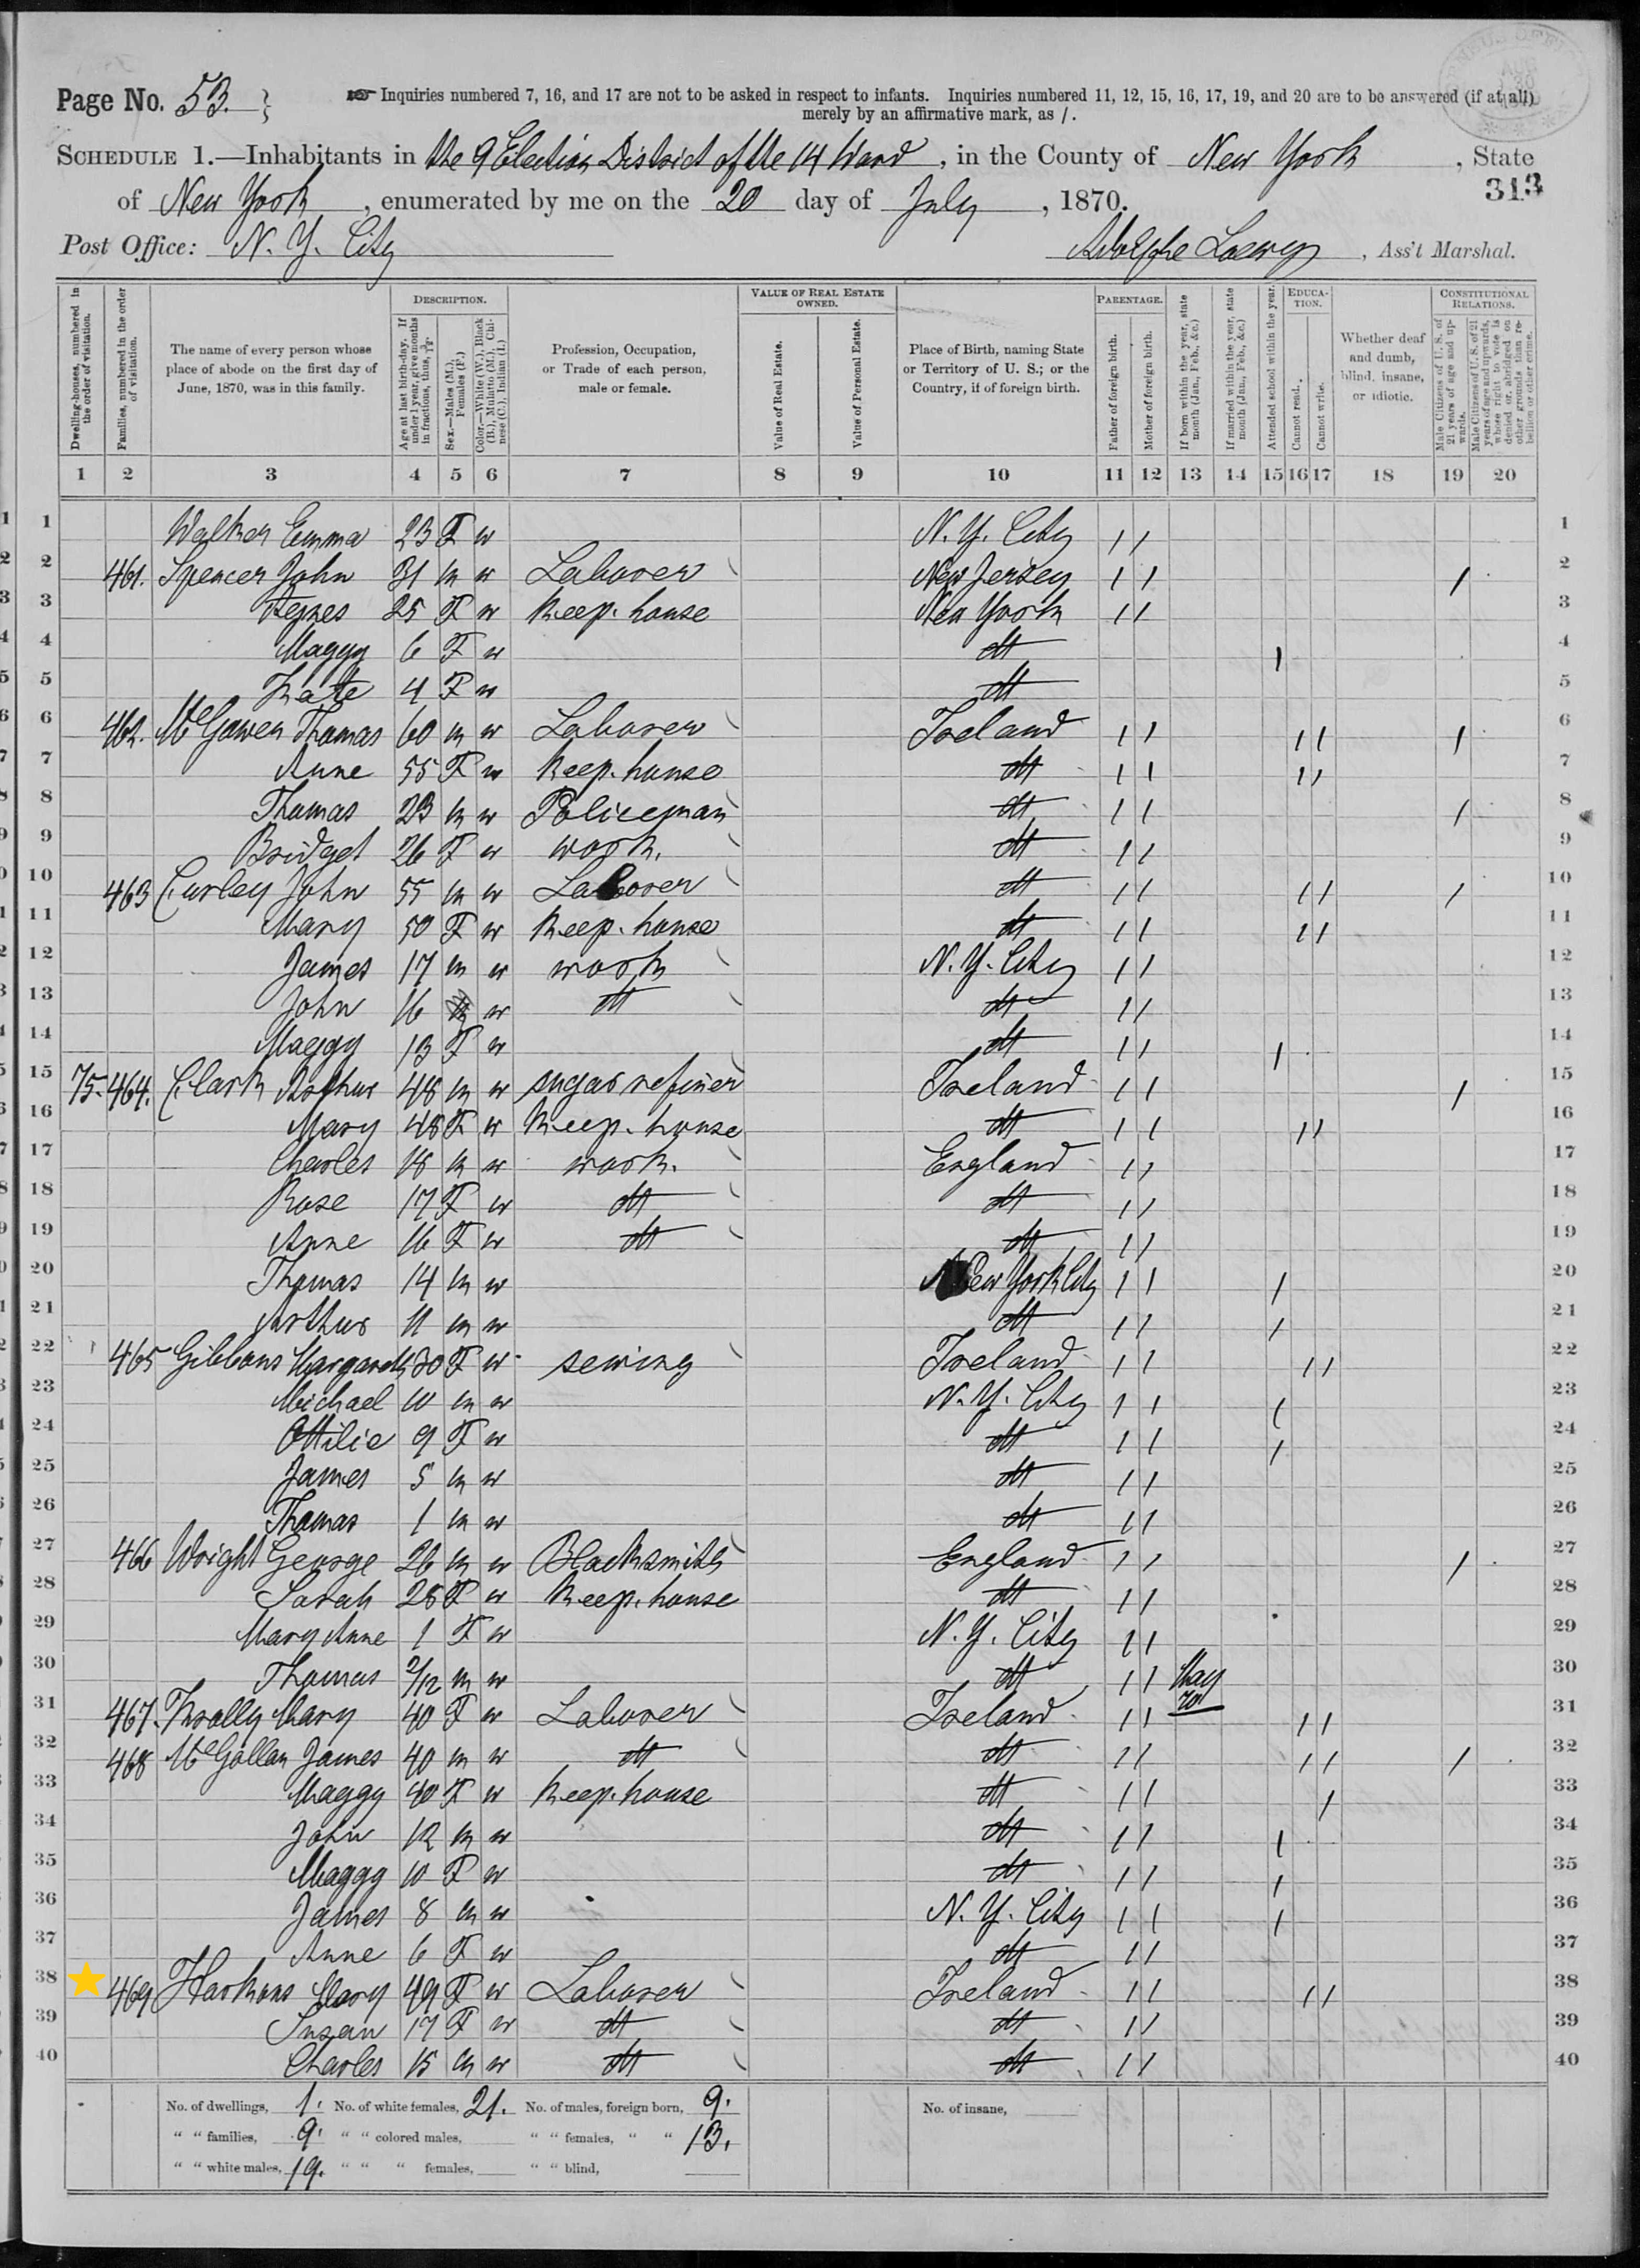 Page No. 53.
Inquiries numbered 7, 16, and 17 are not to be asked in respect to infants. Inquiries numbered 11, 12, 15, 16, 17, 19, and 20 are to be answered (if at all)
merely by an affirmative mark, as /.
SCHEDULE 1.—Inhabitants in the 9 Election District of the 14 Ward, in the County of New York, State
313
of New York, enumerated by me on the 20 day of July, 1870.
Post Office: N. Y. City Adolphe Loewy, Ass't Marshal.
Dwelling-houses, numbered in the order of visitation.
Families, numbered in the order of visitation.
The name of every person whose place of abode on the first day of June, 1870, was in this family.
DESCRIPTION.
Age at last birth-day. If under 1 year, give months in fractions, thus, 3/12.
Sex.—Males (M.), Females (F.)
Color.—White (W.), Black (B.), Mulatto (M.), Chinese (C.), Indian (I.)
Profession, Occupation, or Trade of each person, male or female.
VALUE OF REAL ESTATE OWNED.
Value of Real Estate.
Value of Personal Estate.
Place of Birth, naming State or Territory of U. S.; or the Country, if of foreign birth.
PARENTAGE.
Father of foreign birth.
Mother of foreign birth.
If born within the year, state month (Jan., Feb., &c.)
If married within the year, state month (Jan., Feb., &c.)
Attended school within the year.
EDUCATION.
Cannot read.
Cannot write.
Whether deaf and dumb, blind, insane, or idiotic.
CONSTITUTIONAL RELATIONS.
Male Citizens of U. S. of 21 years of age and upwards.
Male Citizens of U. S. of 21 years of age and upwards, whose right to vote is denied or abridged on other grounds than rebellion or other crime.
1 2 3 4 5 6 7 8 9 10 11 12 13 14 15 16 17 18 19 20
1 Walker Emma 23 F w N. Y. City / / 1
2 461. Spencer John 31 m w Laborer New Jersey / / / 2
3 Agnes 25 F w Keep. house New York / / 3
4 Maggy 6 F w dtt / 4
5 Kate 4 F w dtt 5
6 462. McGowen Thomas 60 m w Laborer Ireland / / / / / 6
7 Anne 55 F w Keep. house dtt / / / / 7
8 Thomas 23 m w Policeman dtt / / / 8
9 Bridget 26 F w work. dtt / / 9
10 463 Curley John 55 m w Laborer dtt / / / / / 10
11 Mary 50 F w Keep. house dtt / / / / 11
12 James 17 m w work N. Y. City / / 12
13 John 16 m w dtt dtt / / 13
14 Maggy 13 F w dtt / / / 14
15 75. 464. Clark Arthur 48 m w sugar refiner Ireland / / / 15
16 Mary 48 F w Keep. house dtt / / / / 16
17 Charles 18 m w work. England / / 17
18 Rose 17 F w dtt dtt / / 18
19 Anne 16 F w dtt dtt / / 19
20 Thomas 14 m w New York City / / / 20
21 Arthur 11 m w dtt / / / 21
22 465 Gibbons Margareth 30 F w sewing Ireland / / / / 22
23 Michael 10 m w N. Y. City / / / 23
24 Ottilie 9 F w dtt / / / 24
25 James 5 m w dtt / / 25
26 Thomas 1 m w dtt / / 26
27 466 Wright George 26 m w Blacksmith England / / / 27
28 Sarah 28 F w Keep. house dtt / / 28
29 Mary Anne 1 F w N. Y. City / / 29
30 Thomas 2/12 m w dtt / / May 70 30
31 467. Krolly Mary 40 F w Laborer Ireland / / / / 31
32 468 McGollan James 40 m w dtt dtt / / / / / 32
33 Maggy 40 F w Keep. house dtt / / / 33
34 John 12 m w dtt / / / 34
35 Maggy 10 F w dtt / / / 35
36 James 8 m w N. Y. City / / / 36
37 Anne 6 F w dtt / / 37
38 469 Harkons Mary 49 F w Laborer Ireland / / / / 38
39 Susan 17 F w dtt dtt / / 39
40 Charles 15 m w dtt dtt / / 40
No. of dwellings, 1. No. of white females, 21. No. of males, foreign born, 9. No. of insane,
" " families, 9. " " colored males, " " females, " " 13.
" " white males, 19. " " " females, " " blind,